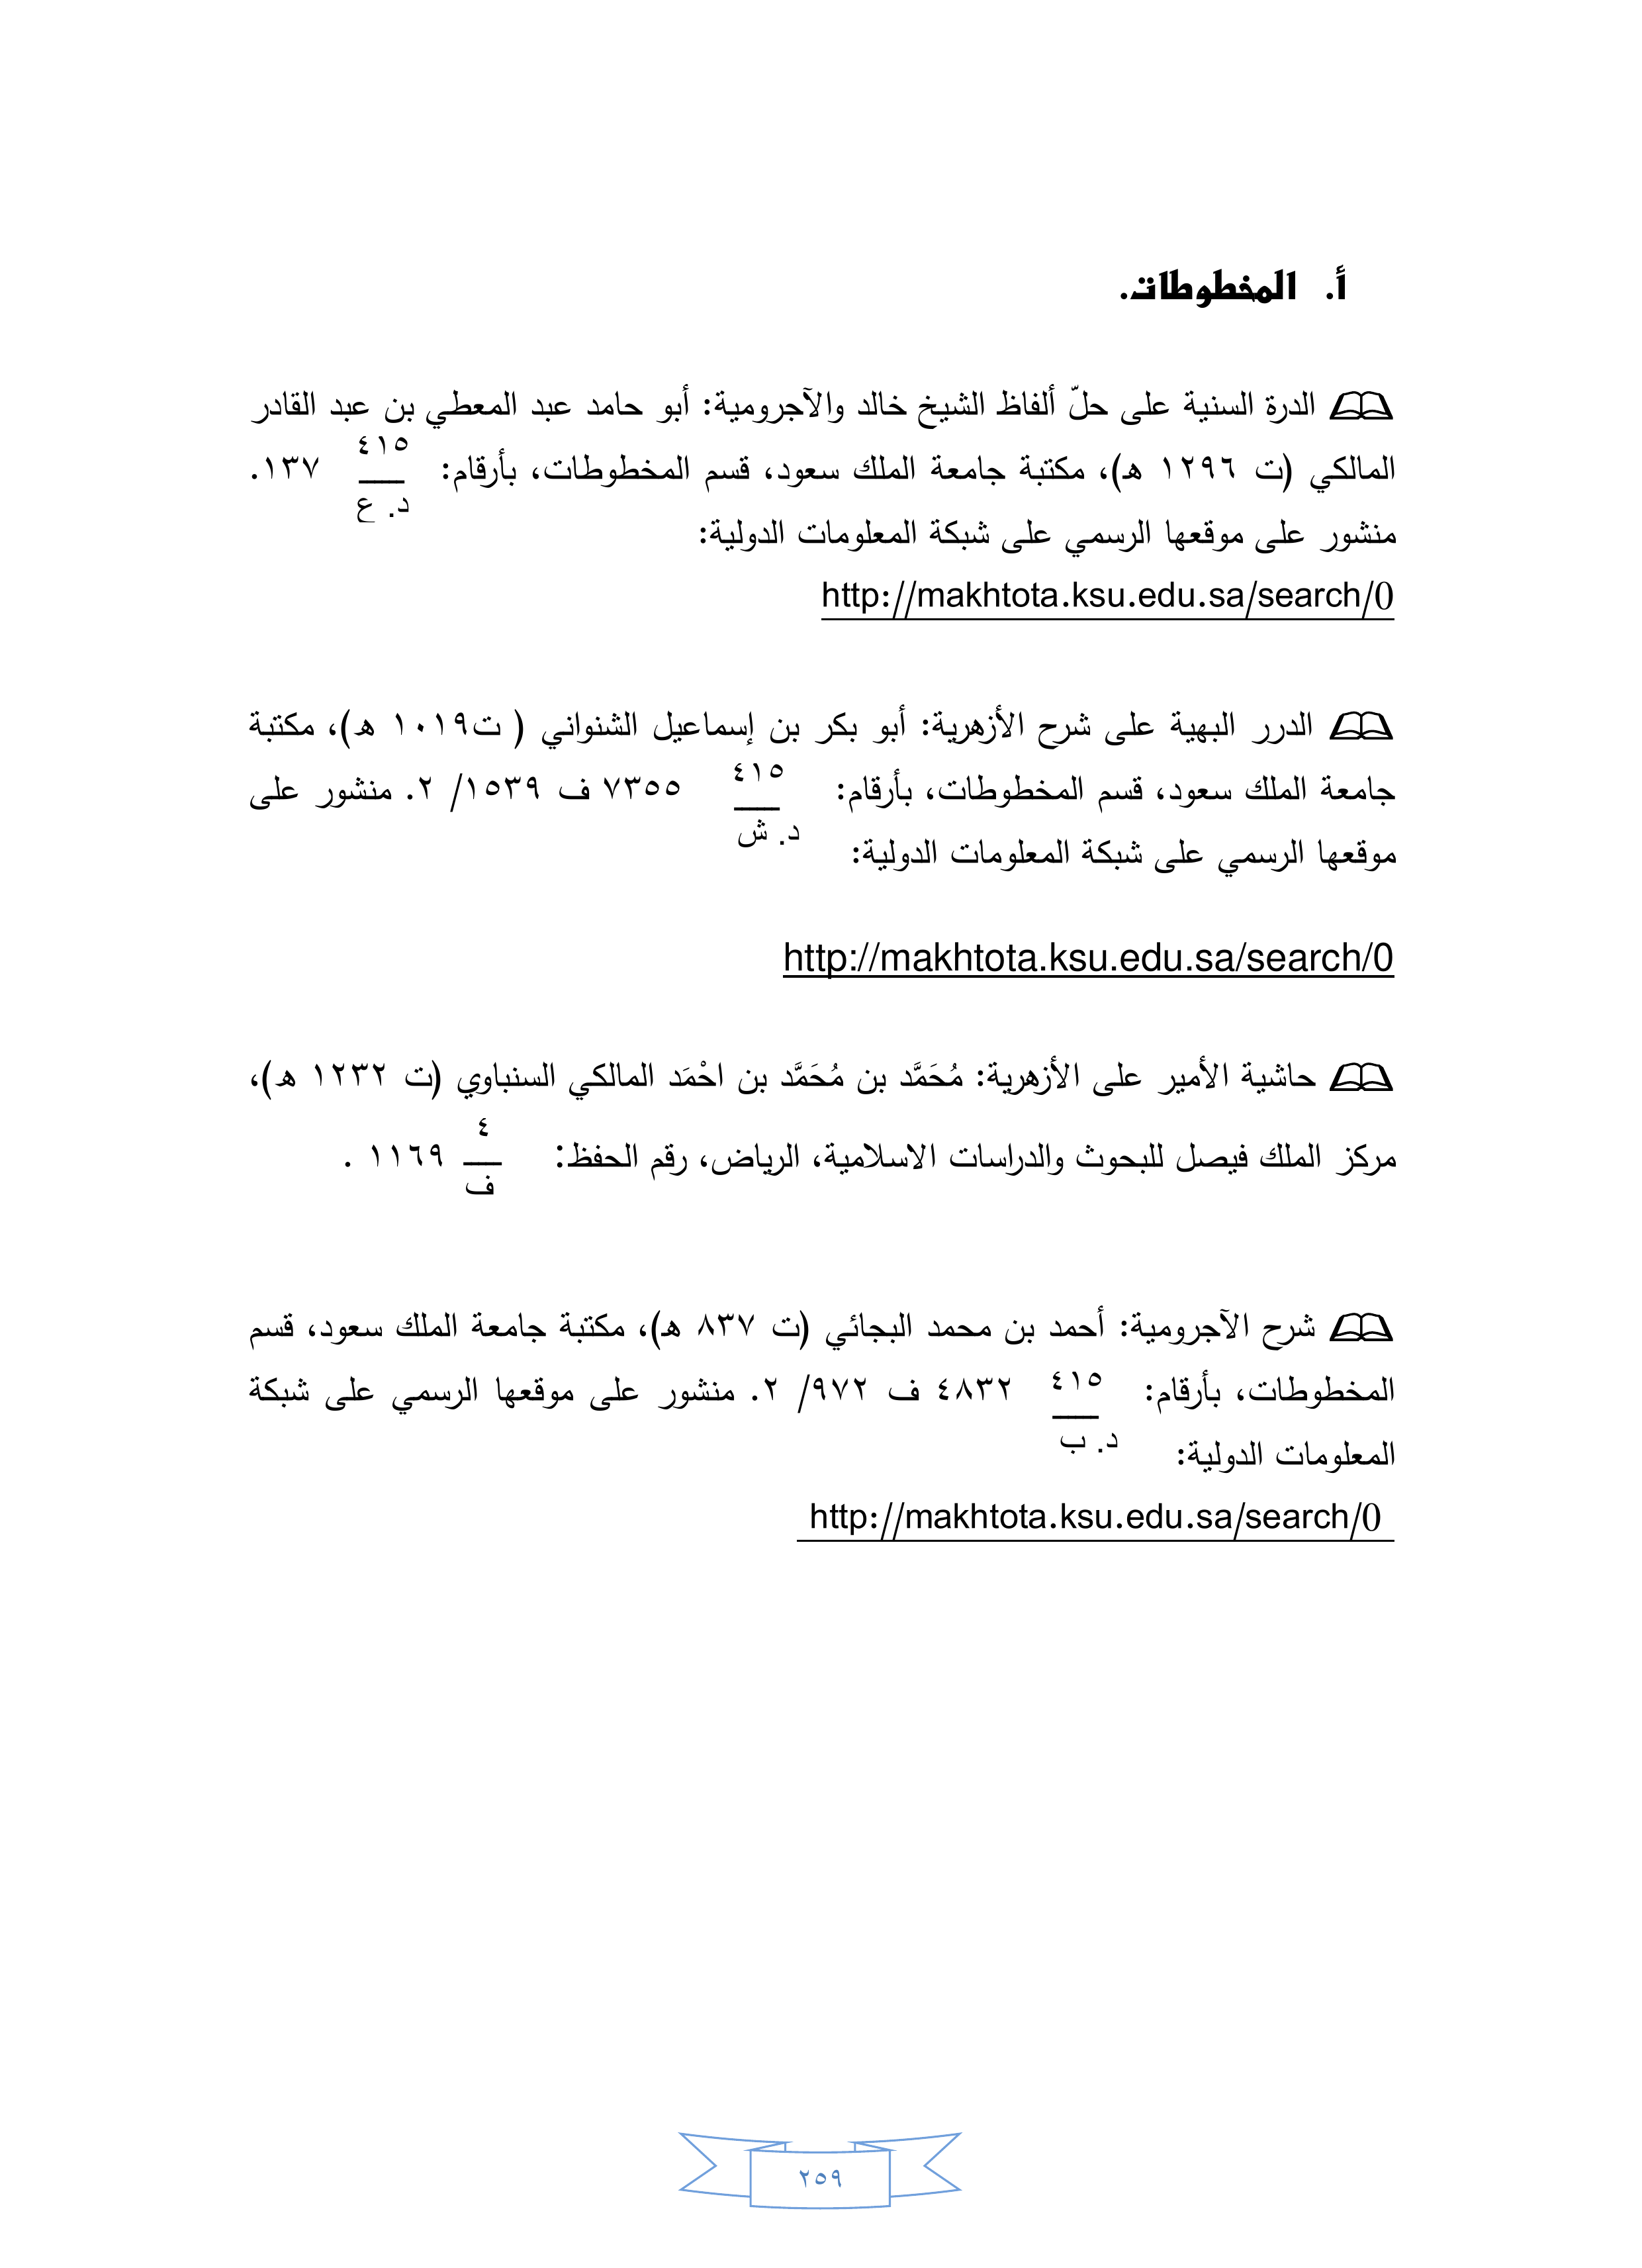 أ. المخطوطات.
الدرة السنية على حلّ ألفاظ الشيخ خالد والآجرومية: أبو حامد عبد المعطي بن عبد القادر
المالكي (ت ١٢٩٦ هـ)، مكتبة جامعة الملك سعود، قسم المخطوطات، بأرقام: ٤١٥ / د. ع ١٣٧.
منشور على موقعها الرسمي على شبكة المعلومات الدولية:
http://makhtota.ksu.edu.sa/search/0
الدرر البهية على شرح الأزهرية: أبو بكر بن إسماعيل الشنواني ( ت١٠١٩ هـ)، مكتبة
جامعة الملك سعود، قسم المخطوطات، بأرقام: ٤١٥ / د. ش ٧٣٥٥ ف ١٥٣٩/ ٢. منشور على
موقعها الرسمي على شبكة المعلومات الدولية:
http://makhtota.ksu.edu.sa/search/0
حاشية الأمير على الأزهرية: مُحَمَّد بن مُحَمَّد بن احْمَد المالكي السنباوي (ت ١٢٣٢ هـ)،
مركز الملك فيصل للبحوث والدراسات الاسلامية، الرياض، رقم الحفظ: ٤ / ف ١١٦٩ .
شرح الآجرومية: أحمد بن محمد البجائي (ت ٨٣٧ هـ)، مكتبة جامعة الملك سعود، قسم
المخطوطات، بأرقام: ٤١٥ / د. ب ٤٨٣٢ ف ٩٧٢/ ٢. منشور على موقعها الرسمي على شبكة
المعلومات الدولية:
http://makhtota.ksu.edu.sa/search/0
٢٥٩